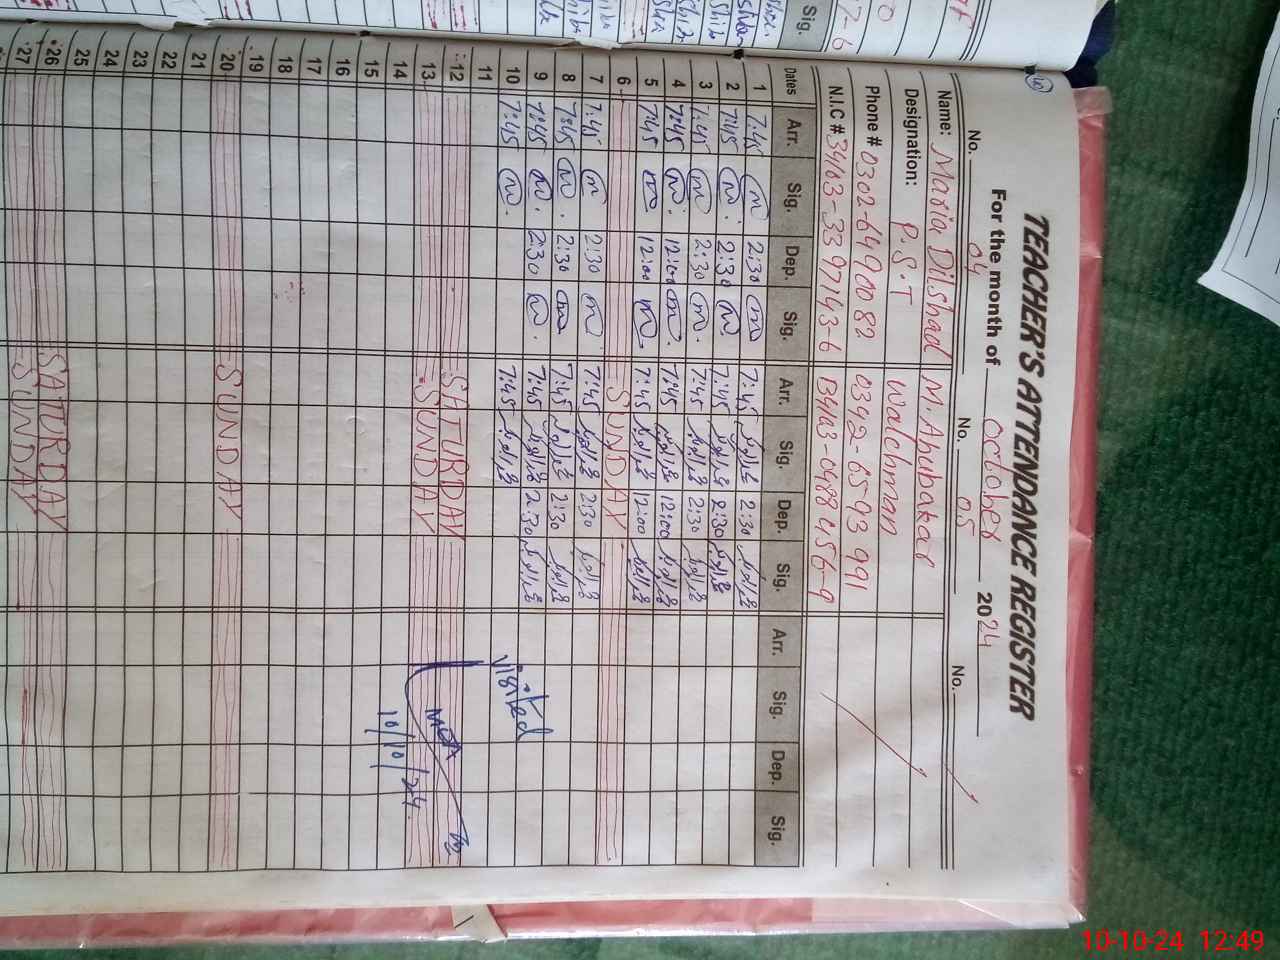 TEACHER'S ATTENDANCE REGISTER
For the month of October 2024
No. 04 No. 05 No.
Name: Maria Dilshad M. Abubakar
Designation: P.S.T Watchman
Phone # 0302-6490082 0342-6593991
N.I.C # 34103-3397143-6 34103-0488456-9
Dates Arr. Sig. Dep. Sig. Arr. Sig. Dep. Sig. Arr. Sig. Dep. Sig.
1 7:45 2:30 7:45 2:30
2 7:45 2:30 7:45 2:30
3 7:45 2:30 7:45 2:30
4 7:45 12:00 7:45 12:00
5 7:45 12:00 7:45 12:00
6 SUNDAY
7 7:45 2:30 7:45 2:30
8 7:45 2:30 7:45 2:30
9 7:45 2:30 7:45 2:30
10 7:45 7:45
visited
11
12 SATURDAY
13 SUNDAY
14
10/10/24
15
16
17
18
19
20 SUNDAY
21
22
23
24
25
26 SATURDAY
27 SUNDAY
Sig.
10-10-24 12:49